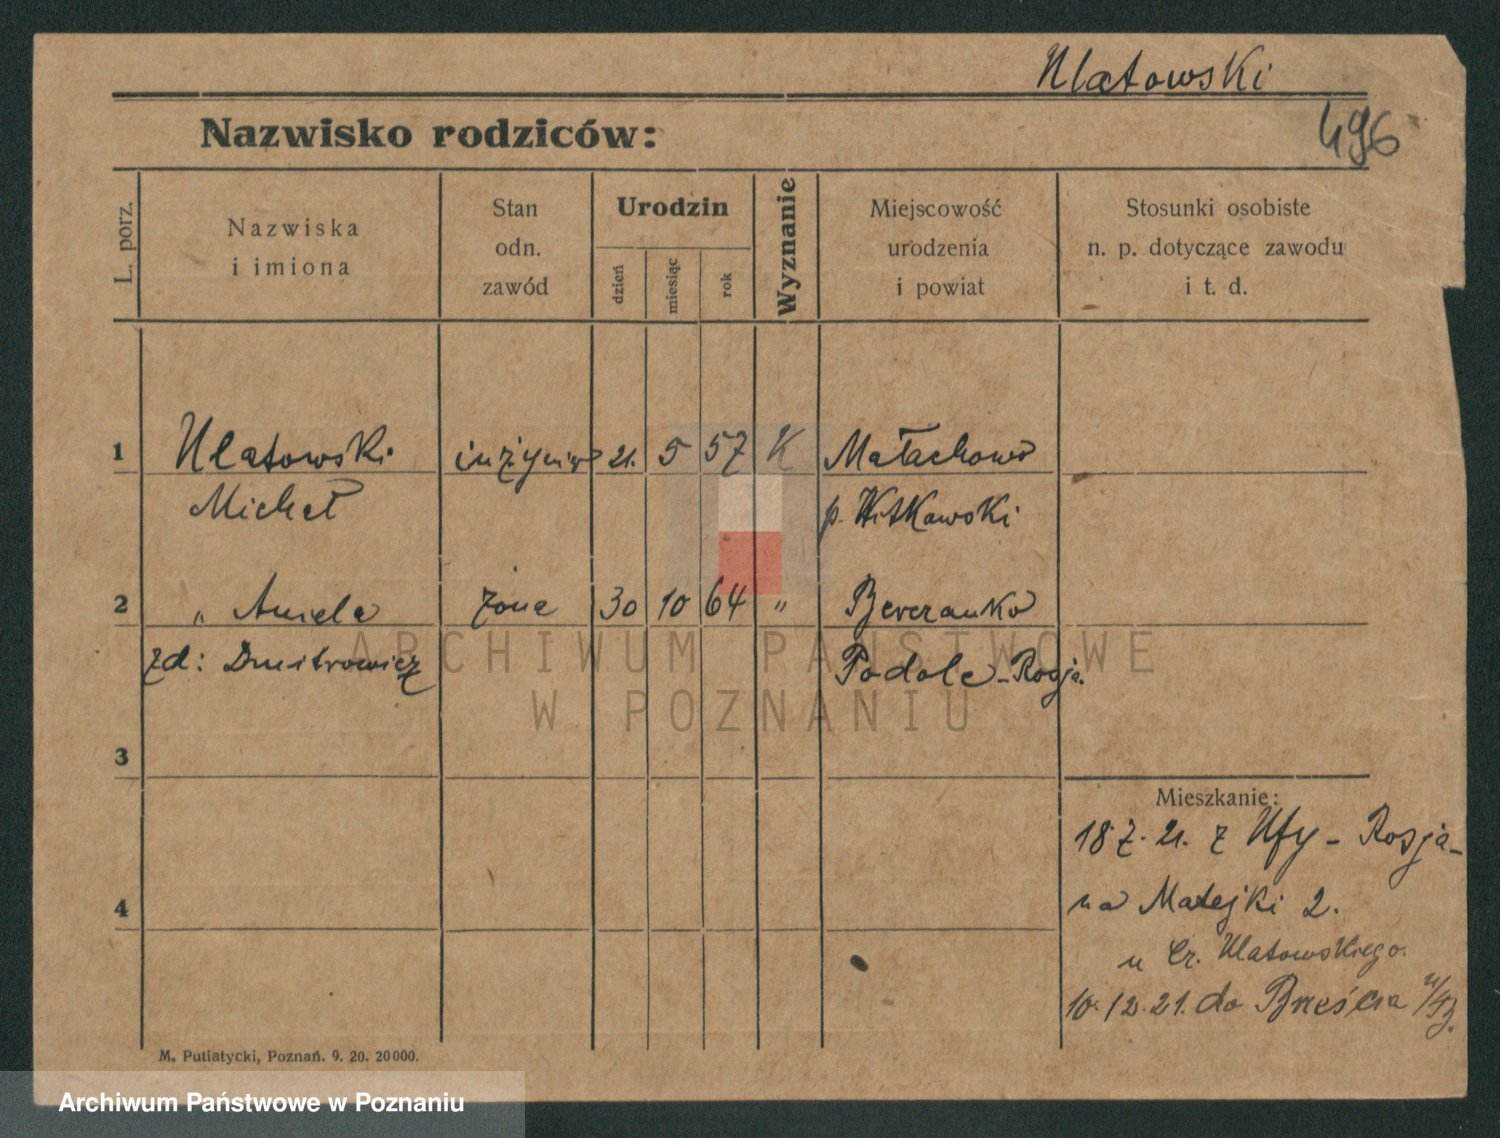 Ulatowski
496
Nazwisko rodziców:
L. porz.
Nazwiska
i imiona
Stan
odn.
zawód
Urodzin
dzień
miesiąc
rok
Wyznanie
Miejscowość
urodzenia
i powiat
Stosunki osobiste
n. p. dotyczące zawodu
i t. d.
1 Ulatowski inżynier 21. 5 57 K Małachowo
Michał p. Witkowski
2 " Aniela żona 30 10 64 "
zd: Dmitrowicz Podole - Rosja.
3
4
Mieszkanie:
18.7.21. z Ufy - Rosja -
na Matejki 2.
u Cz. Ulatowskiego.
10.12.21. do Brześcia n/B.
M. Putiatycki, Poznań. 9. 20. 20000.
ARCHIWUM PAŃSTWOWE
W POZNANIU
Archiwum Państwowe w Poznaniu